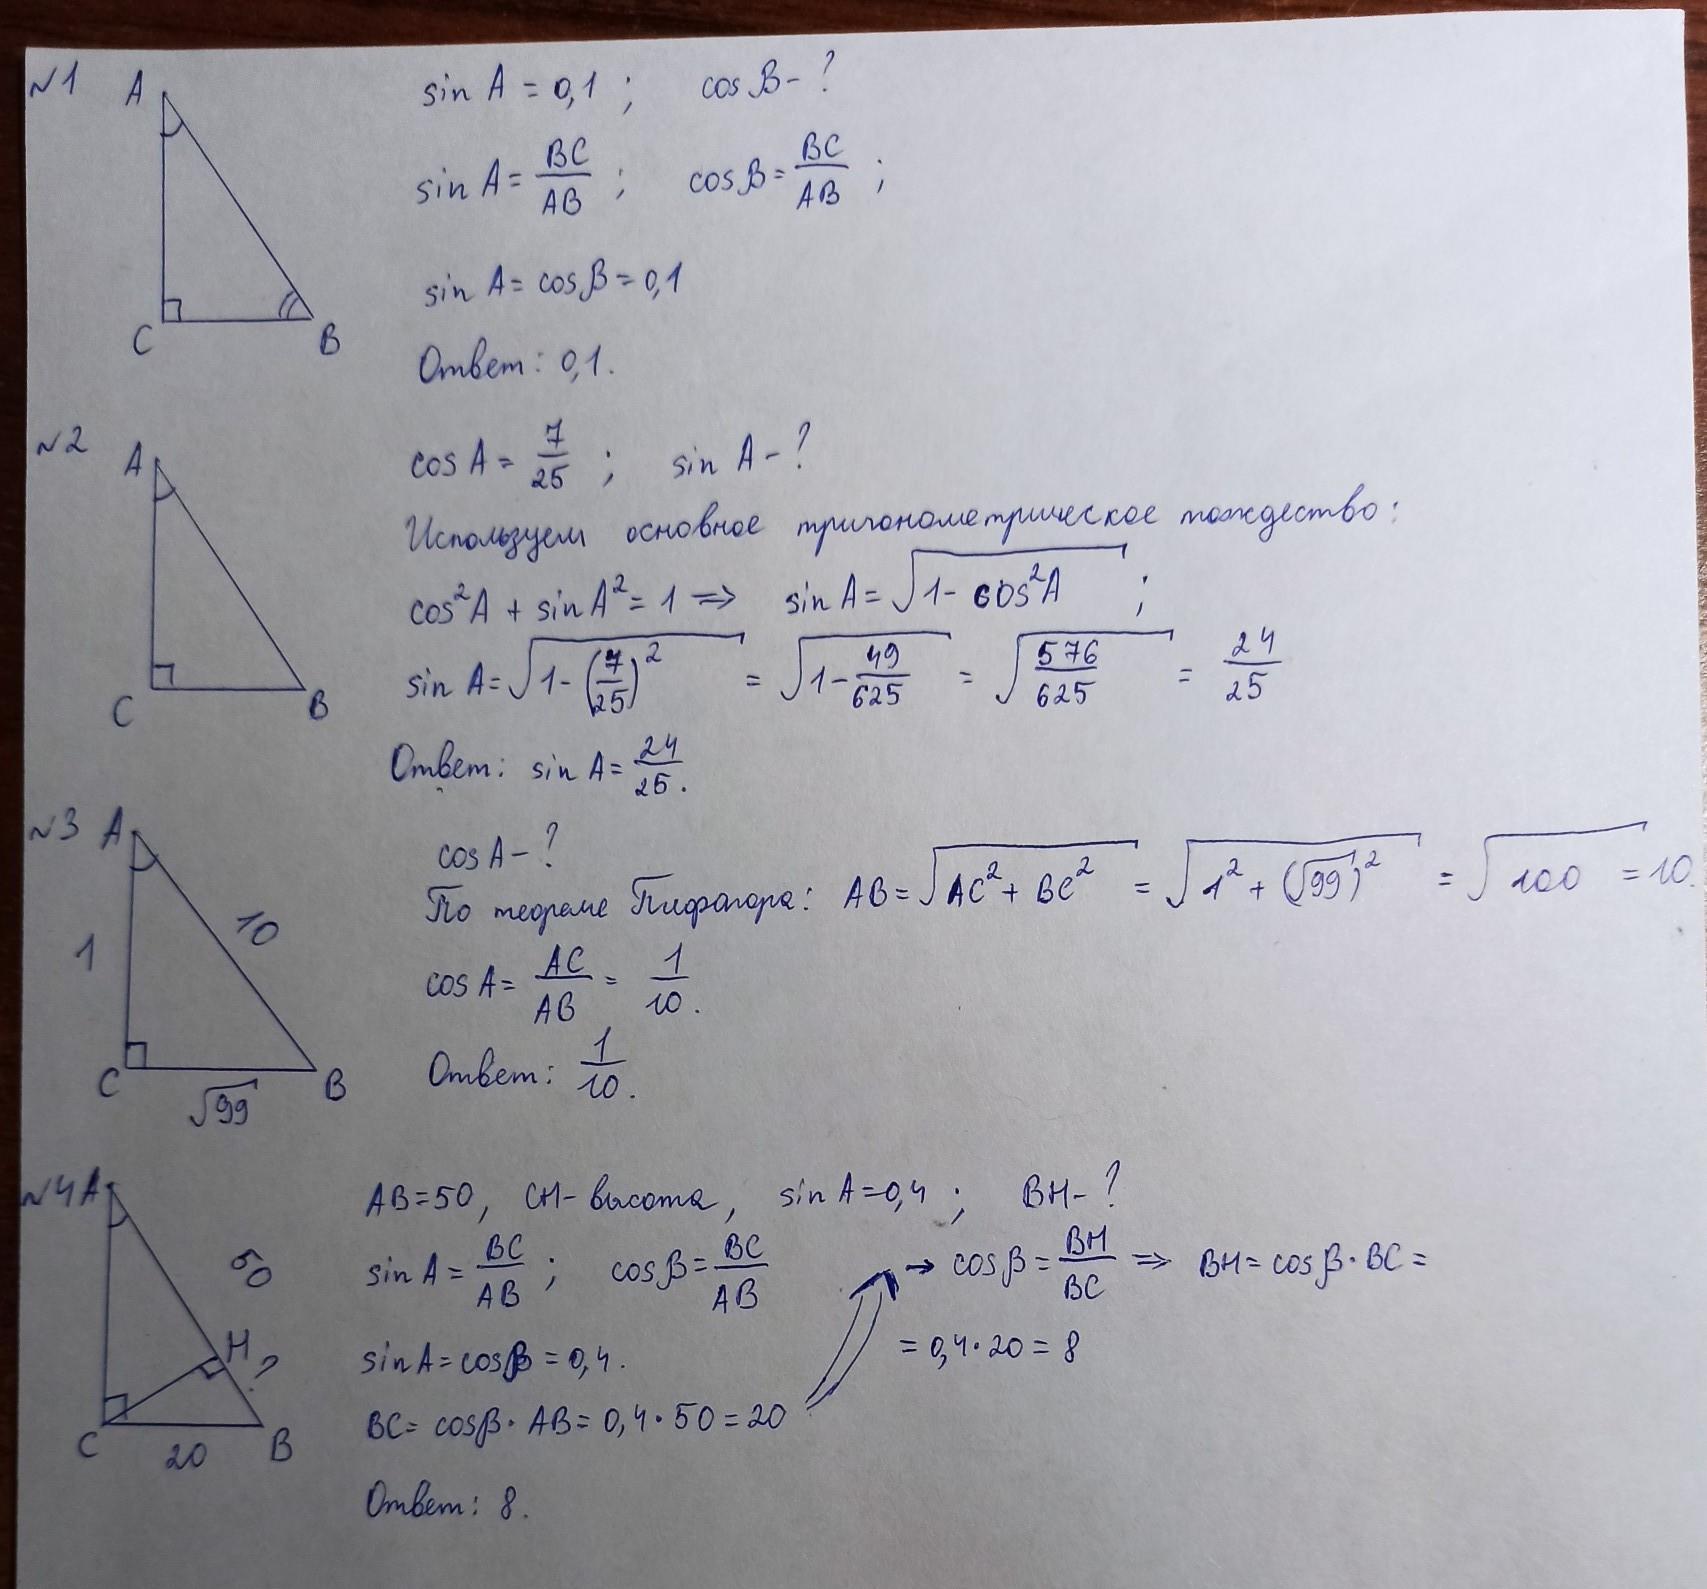 №1 A sin A = 0,1 ; cos B - ?
sin A = BC/AB ; cos B = BC/AB ;
sin A = cos B = 0,1
C B
Ответ: 0,1.
№2 A cos A = 7/25 ; sin A - ?
Используем основное тригонометрическое тождество:
cos²A + sin A² = 1 => sin A = √(1 - cos²A) ;
sin A = √(1 - (7/25)²) = √(1 - 49/625) = √(576/625) = 24/25
C B
Ответ: sin A = 24/25.
№3 A cos A - ?
По теореме Пифагора: AB = √(AC² + BC²) = √(1² + (√99)²) = √100 = 10.
1 10
cos A = AC/AB = 1/10.
C B
√99
Ответ: 1/10.
№4 A AB = 50, CH - высота, sin A = 0,4 ; BH - ?
50
sin A = BC/AB ; cos B = BC/AB
H ?
sin A = cos B = 0,4.
BC = cos B · AB = 0,4 · 50 = 20
→ cos B = BH/BC => BH = cos B · BC =
= 0,4 · 20 = 8
C 20 B
Ответ: 8.